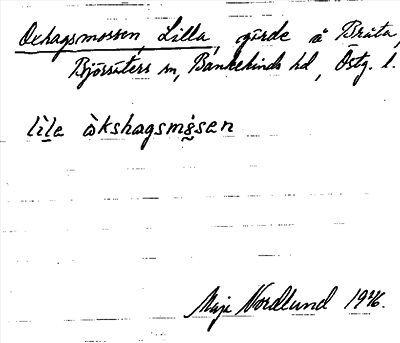 Oxhagsmossen, Lilla, gärde å Bråta,
Björsäters sn, Bankekinds hd, Östg. l.
lìle òkshagsmòsen
Maje Nordlund 1946.